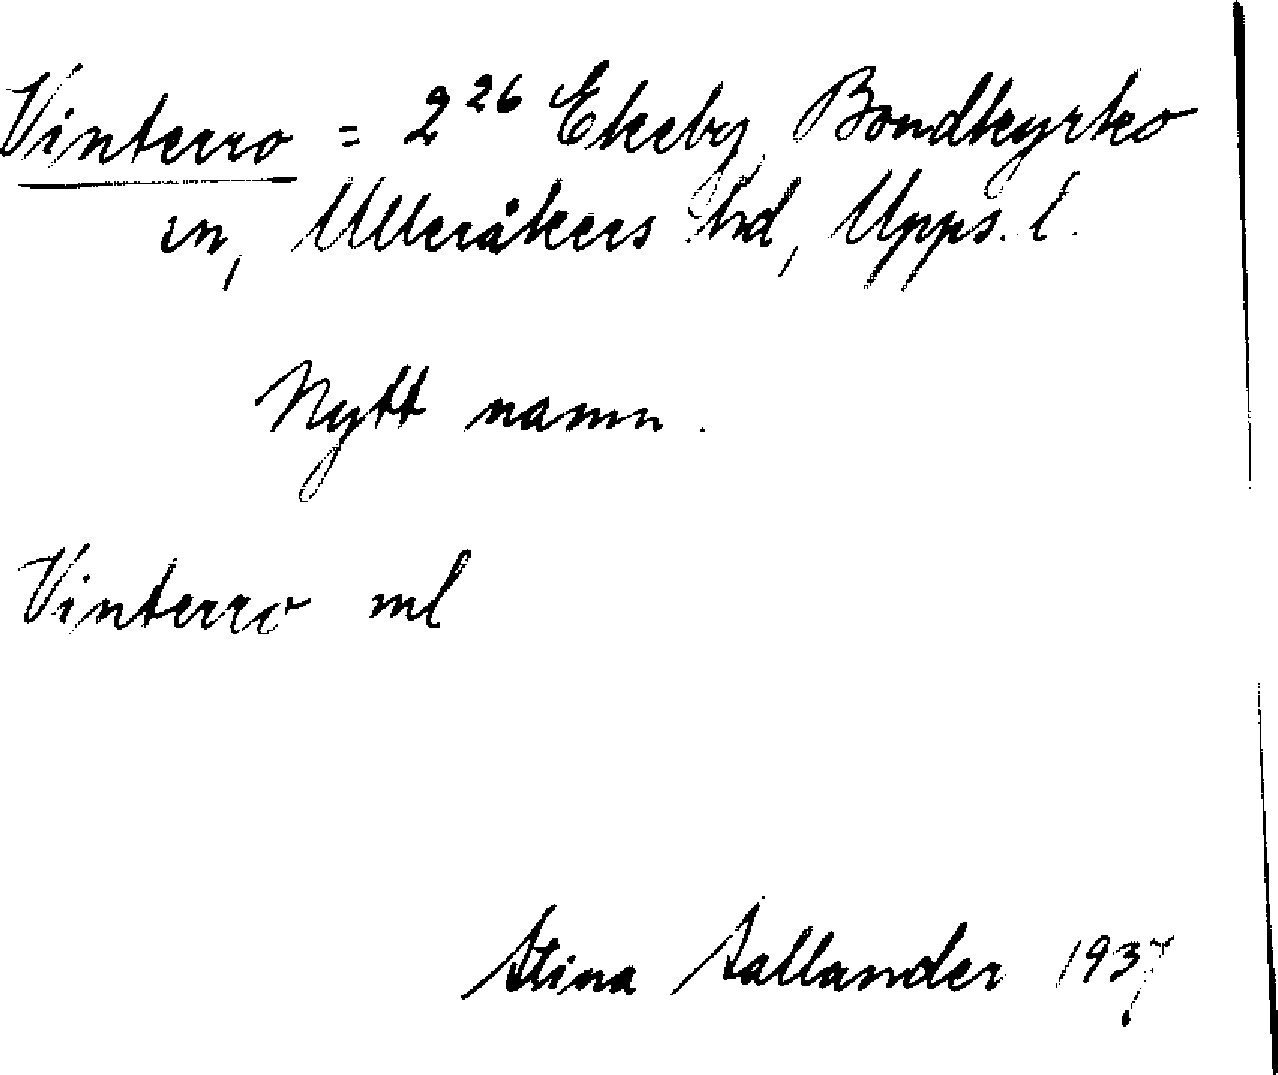 Vinterro = 2²⁶ Ekeby, Bondkyrko
sn, Ulleråkers hd, Upps. l.
Nytt namn.
Vinterro ml
Stina Sallander 1937